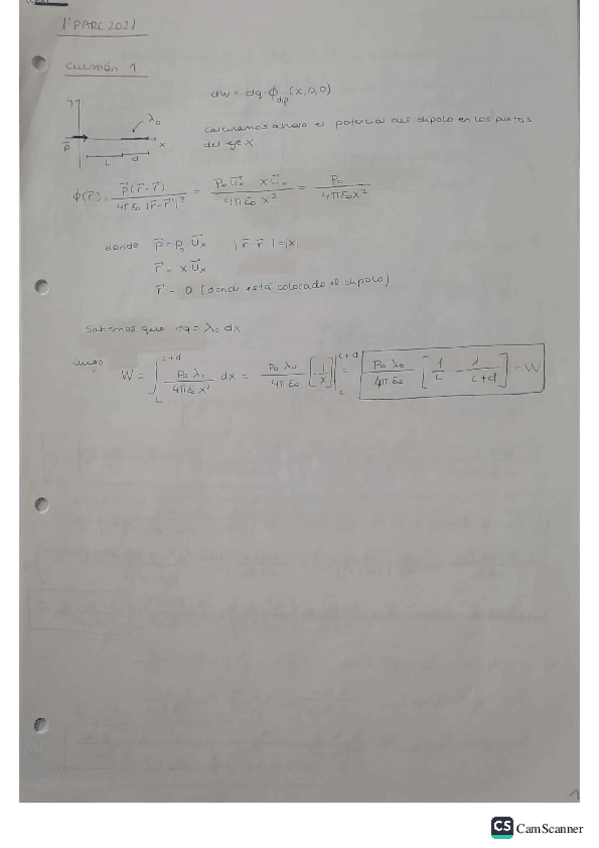 1º PARC 2021
Cuestión 1
dW = dq · ϕdip (x,0,0)
y λ₀
Calculamos ahora el potencial del dipolo en los puntos
del eje X
p⃗ L d x
ϕ(r⃗) = p⃗(r⃗-r⃗') / 4πε₀ |r⃗-r⃗'|³ = P₀ u⃗ₓ · x u⃗ₓ / 4πε₀ x³ = P₀ / 4πε₀x²
donde p⃗ = P₀ u⃗ₓ |r⃗ r⃗'| = |x|
r⃗ = x u⃗ₓ
r⃗' = 0 (donde está colocado el dipolo)
Sabemos que dq = λ₀ dx
Luego
W = ∫_L^{L+d} P₀ λ₀ / 4πε₀ x² dx = P₀ λ₀ / 4πε₀ [-1/x] |_L^{L+d} = P₀ λ₀ / 4πε₀ [1/L - 1/(L+d)] = W
1
CS CamScanner